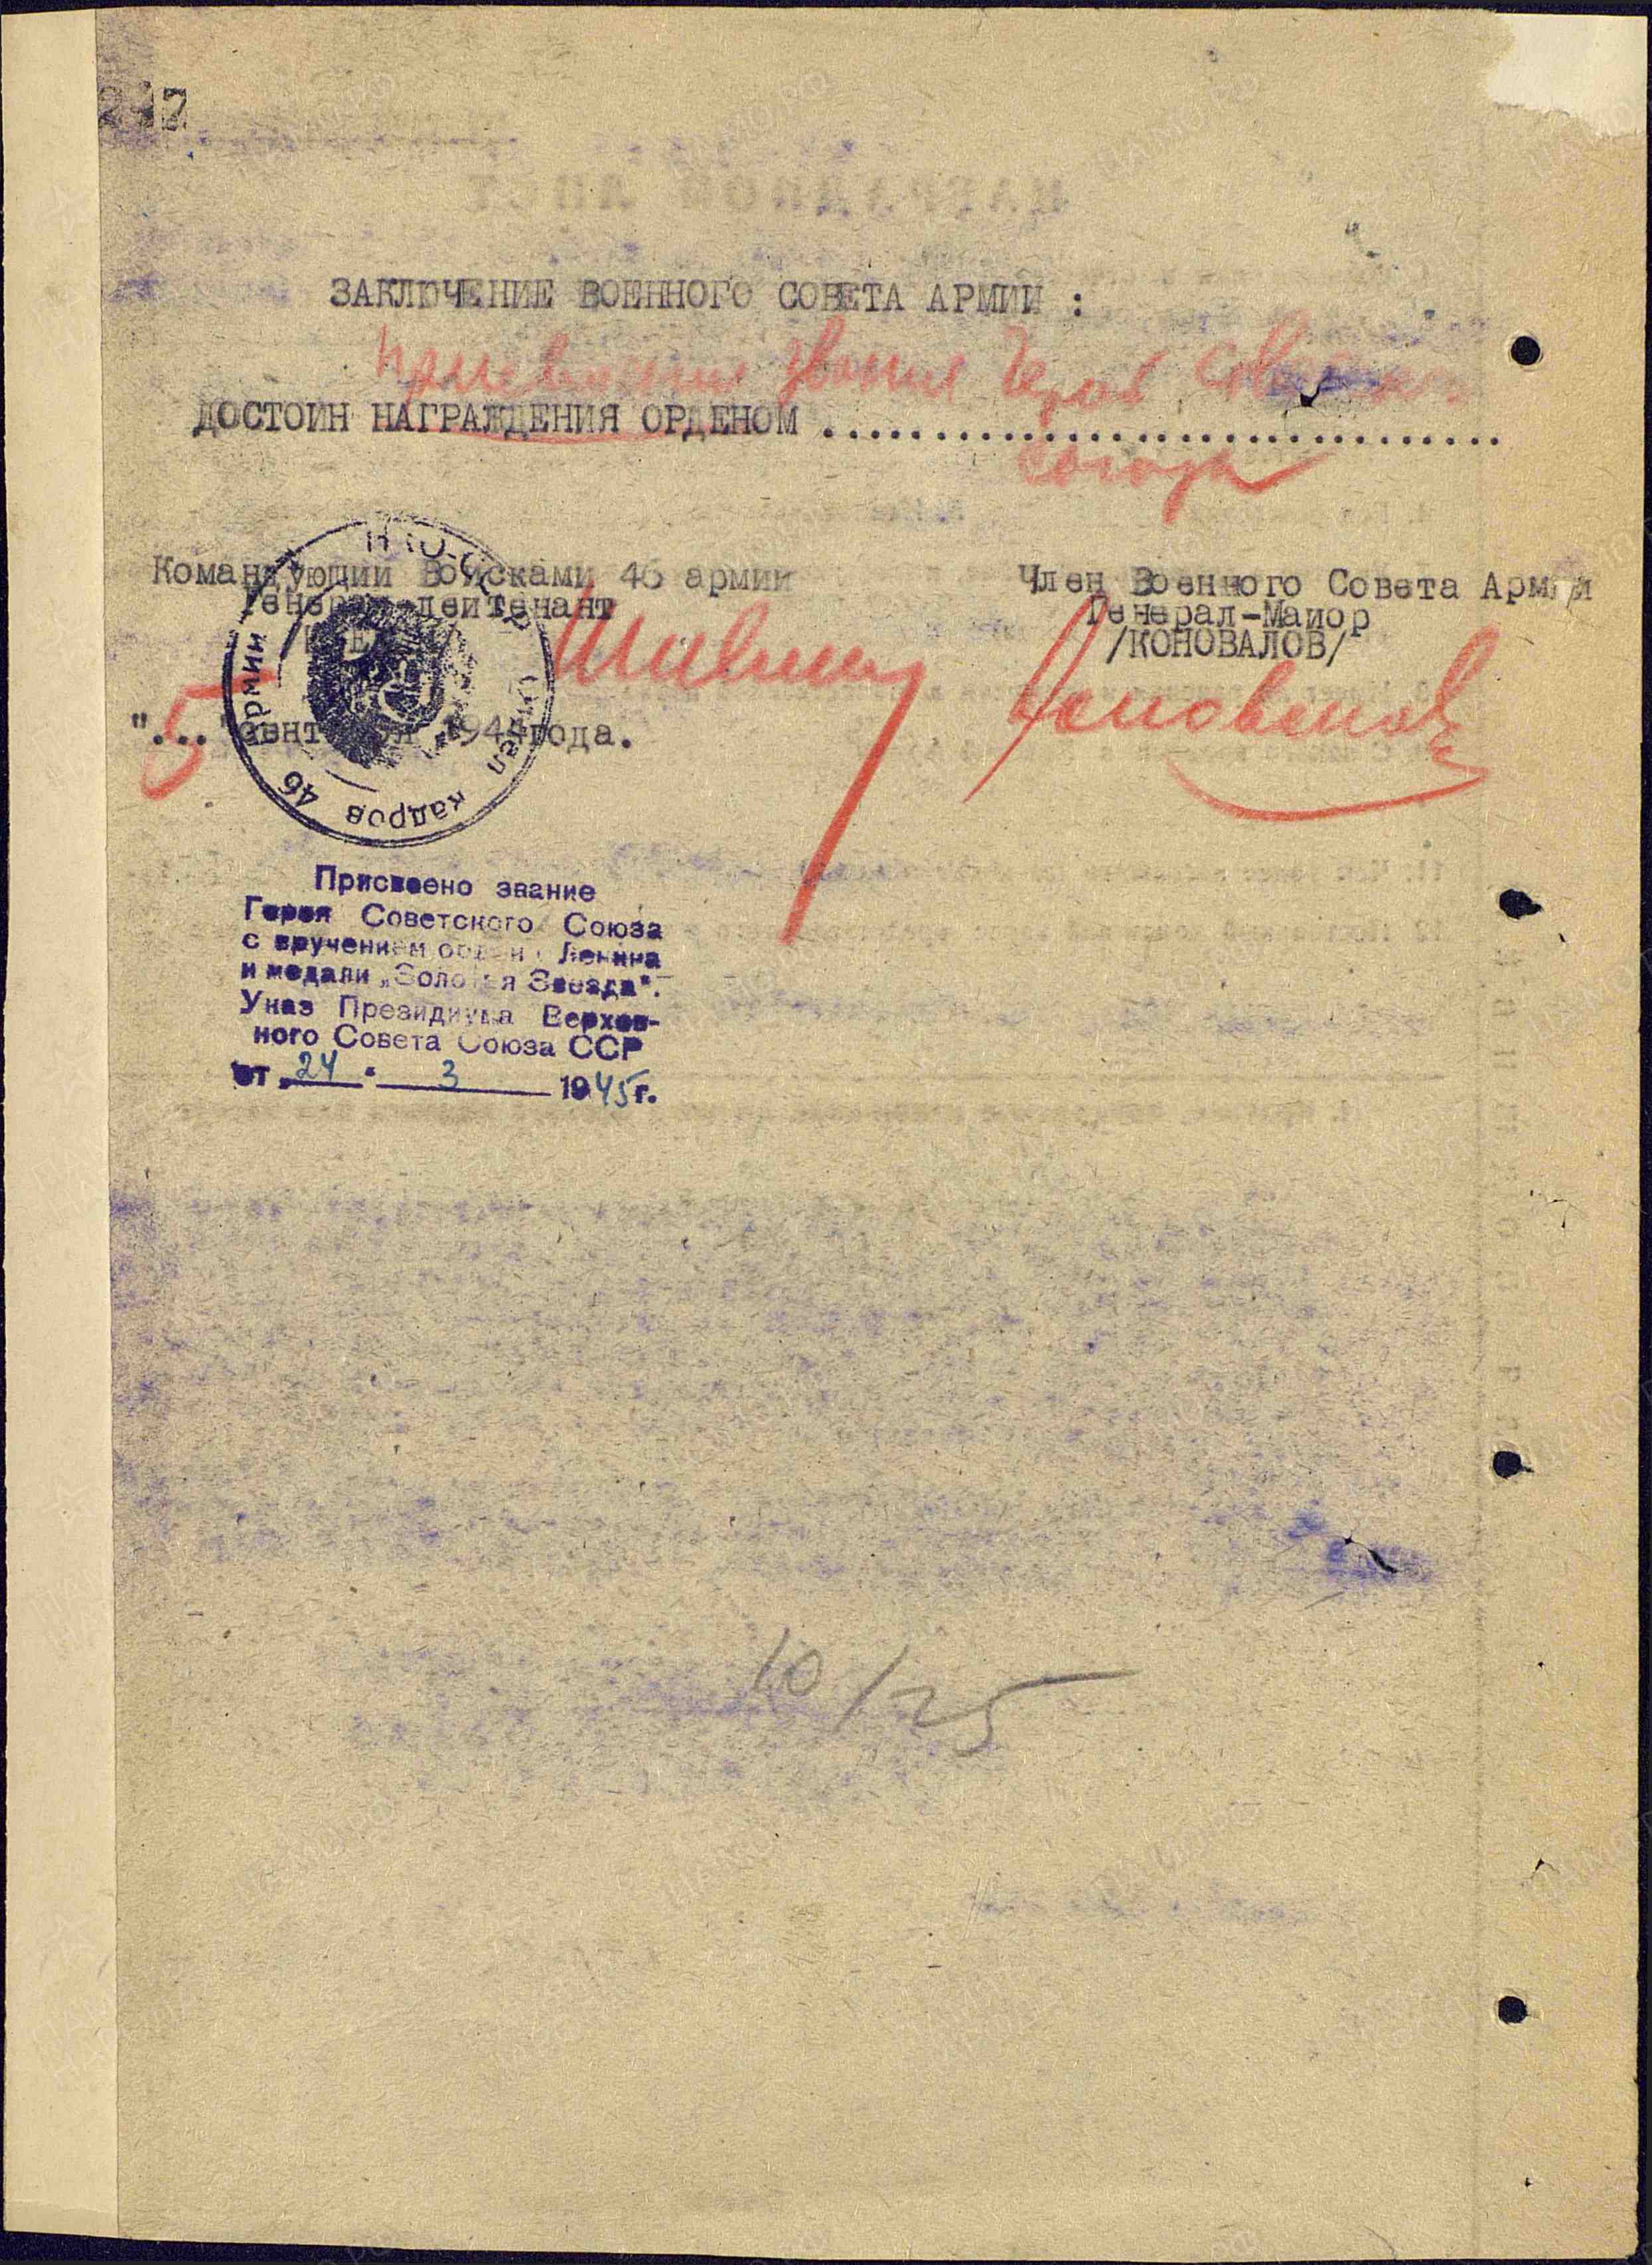 ЗАКЛЮЧЕНИЕ ВОЕННОГО СОВЕТА АРМИИ :
звания Героя
ДОСТОИН НАГРАЖДЕНИЯ ОРДЕНОМ ....................................
Союза
Командующий Войсками 46 армии
Генерал-лейтенант
Член Военного Совета Армии
Генерал-Майор
/КОНОВАЛОВ/
"...5" сентября 1944 года.
кадров 46 армии
Присвоено звание
Героя Советского Союза
с вручением ордена Ленина
и медали „Золотая Звезда".
Указ Президиума Верхов-
ного Совета Союза ССР
от „24" 3 1945 г.
10/25